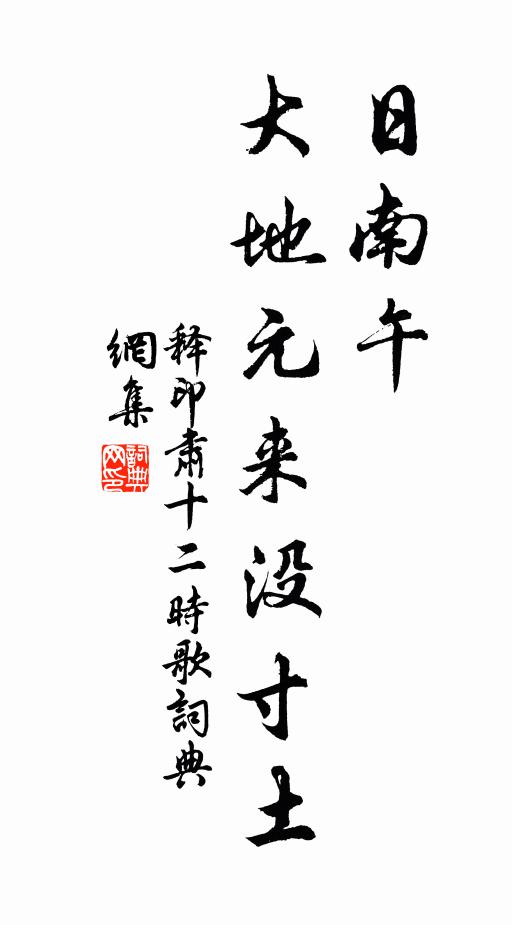 日南午
大地元来没寸土
释印肃十二時歌詞典
網集
詞典网印